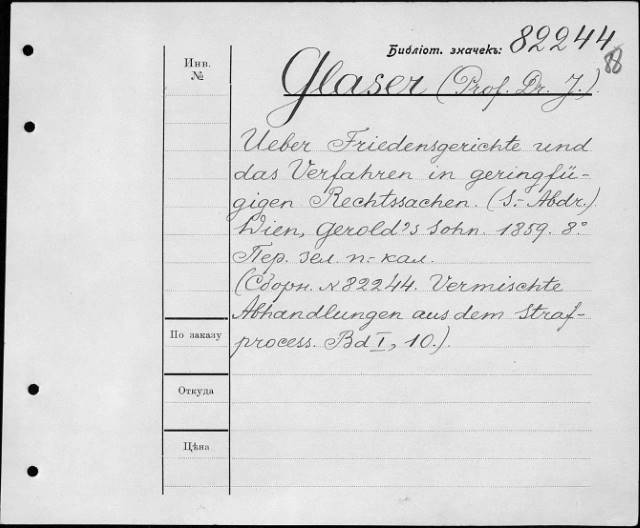 Библіот. значекъ: 82244
88
Инв.
№
Glaser (Prof. Dr. J.)
Ueber Friedensgerichte und
das Verfahren in geringfü-
gigen Rechtssachen. (S.-Abdr.)
Wien, Gerold's Sohn. 1859. 8º
Пер. зел. п.-кал.
(Сборн. №82244. Vermischte
Abhandlungen aus dem Straf-
process. Bd I, 10.)
По заказу
Откуда
Цѣна